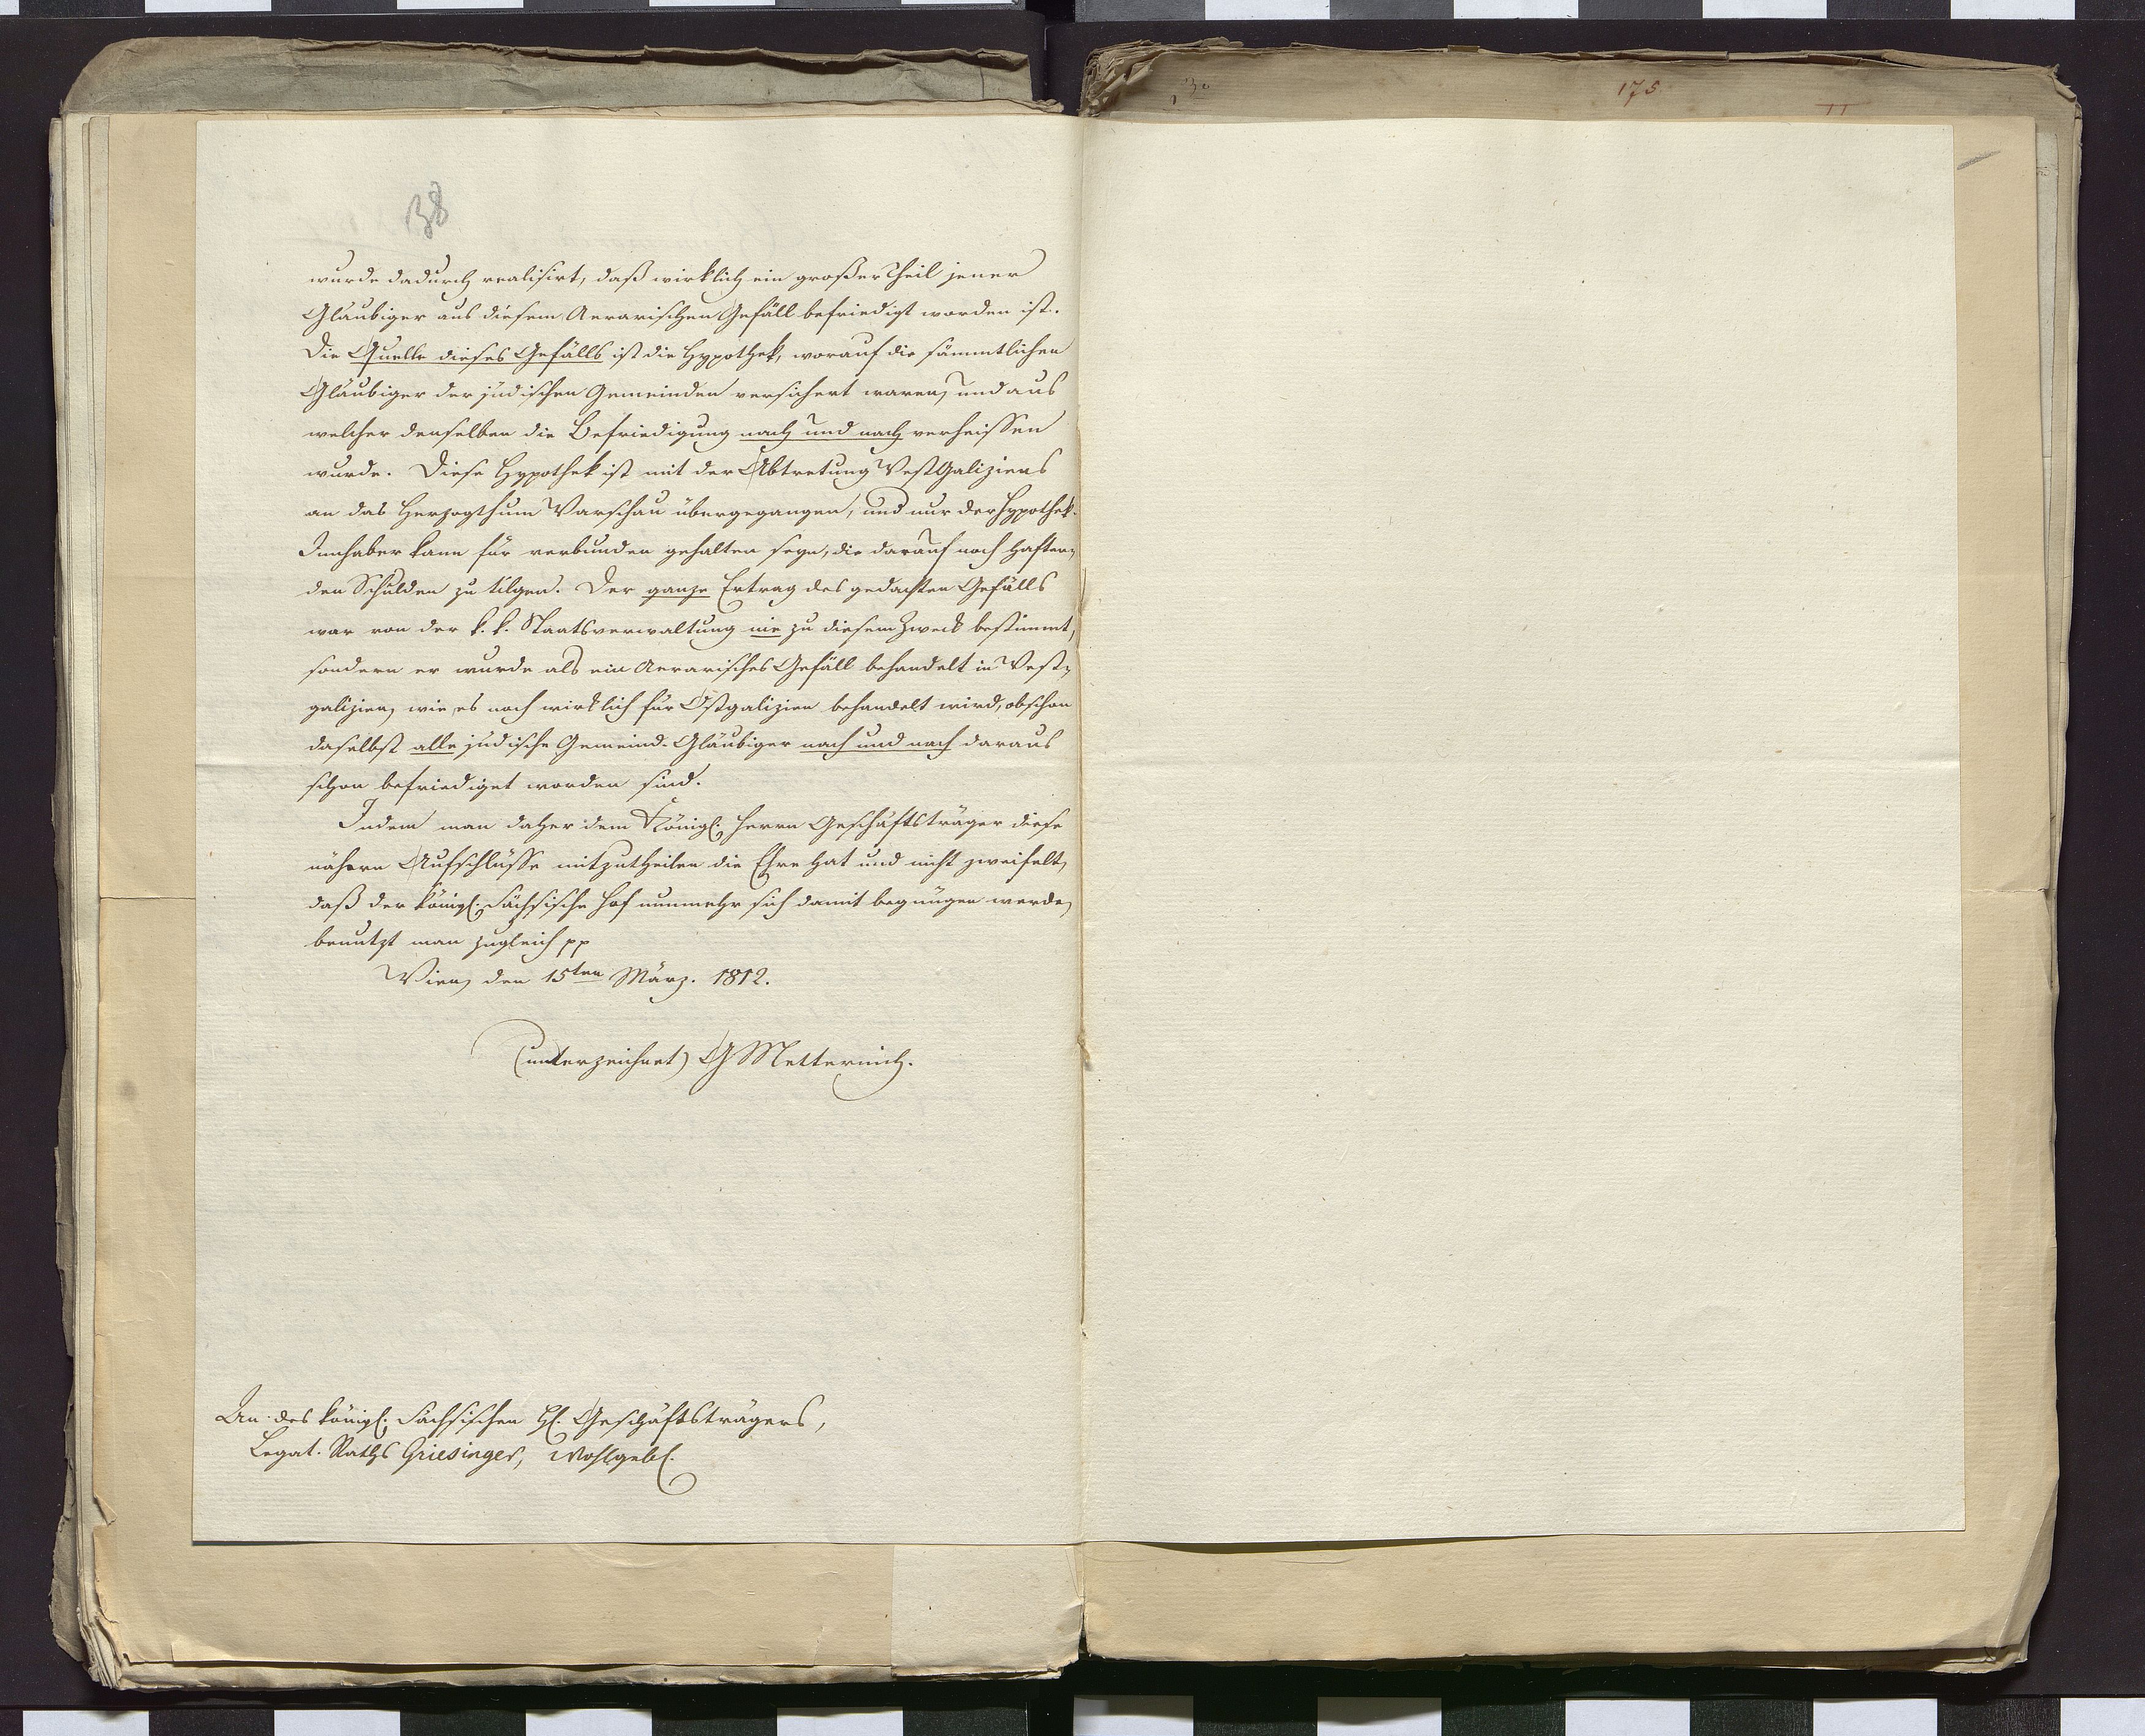 38
wurde dadurch realisirt, daß wirklich ein großer Theil jener
Gläubiger aus diesem Aerarischen Gefäll befriedigt worden ist.
Die Quelle dieses Gefälls ist die Hypothek, worauf die sämmtlichen
Gläubiger der jüdischen Gemeinden versichert waren, und aus
welcher denselben die Befriedigung nach und nach verheissen
wurde. Diese Hypothek ist mit der Abtretung WestGaliziens
an das Herzogthum Warschau übergegangen, und nur der Hypothek-
Innhaber kann für verbunden gehalten seyn, die darauf noch haften-
den Schulden zu tilgen. Der ganze Ertrag des gedachten Gefälls
war von der k. k. Staatsverwaltung nie zu diesem Zweck bestimmt,
sondern er wurde als ein Aerarisches Gefäll behandelt in West-
galizien, wie es noch wirklich für Ostgalizien behandelt wird, obschon
daselbst alle jüdische Gemeind-Gläubiger nach und nach daraus
schon befriediget worden sind.
Indem man daher dem Königl. Herrn Geschäftsträger diese
nähern Aufschlüsse mitzutheilen die Ehre hat und nicht zweifelt,
daß der königl. Sächsische Hof nunmehr sich damit begnügen werde,
benutzt man zugleich pp
Wien, den 15ten März. 1812.
(unterzeichnet) G Metternich.
An des königl. Sächsischen H. Geschäftsträgers,
Legat. Raths Griesinger, Wohlgeb.
175
11